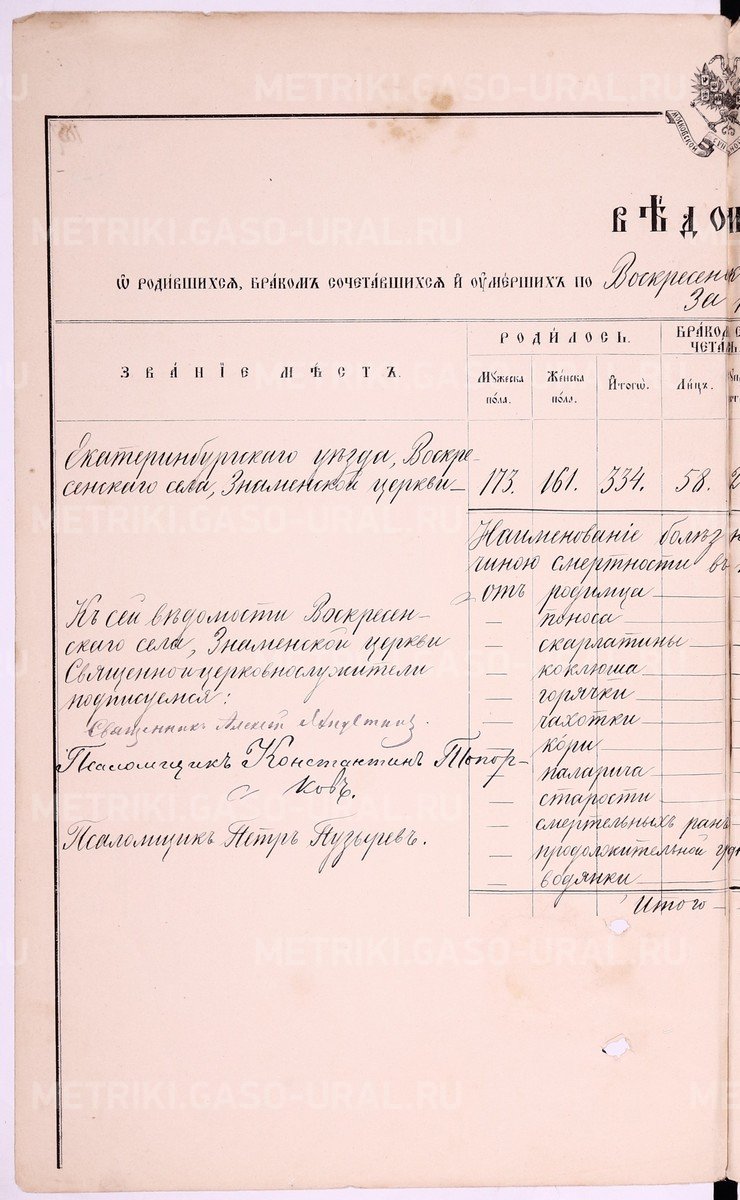 ВѢДОМ
Ѡ РОДИ́ВШИХСЯ, БРА́КОМЪ СОЧЕТА́ВШИХСЯ И҆ ОУ҆МЕ́РШИХЪ ПО Воскресенск
За
ЗВА́НІЕ МѢСТЪ.
РОДИ́ЛОСЬ.
БРА́КОМ С
ЧЕТА́
МꙋЖЕСКА ПО́ЛА.
ЖЕ́НСКА ПО́ЛА.
И҆ТОГѠ̀.
ЛИ́ЦЪ.
Екатеринбургскаго уѣзда, Воскре-
сенскаго села, Знаменской церкви — 173. 161. 334. 58. 2
Наименованіе болѣз
чиною смертности въ
отъ родимца —
— поноса —
— скарлатины —
— коклюша —
— горячки —
— чахотки —
— кори —
— паларича —
— старости —
— смертельныхъ ранъ
— продолжительной
— водянки —
Итого —
Къ сей вѣдомости Воскресен-
скаго села, Знаменской церкви
Священноицерковнослужители
подписуемся:
Священникъ Алексій
Псаломщикъ Константинъ Топор-
ковъ.
Псаломщикъ Петръ Пузыревъ.
METRIKI.GASO-URAL.RU